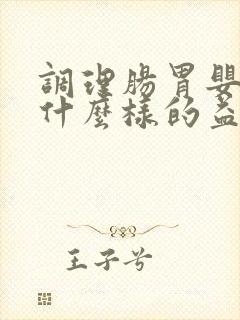 調理腸胃嬰
什麼樣的益
王子兮